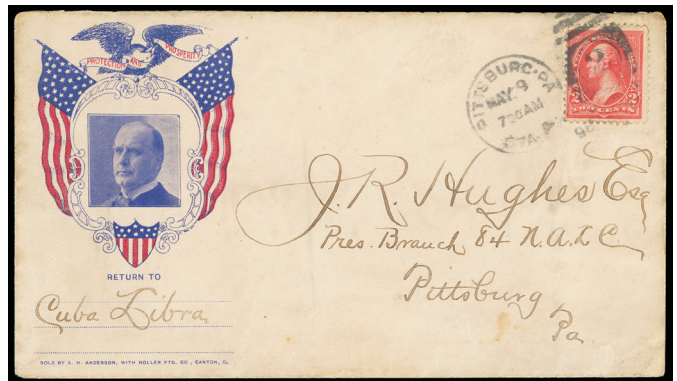 PROTECTION AND PROSPERITY
RETURN TO
Cuba Libra
SOLD BY A. H. ANDERSON, WITH ROLLER PTG. CO., CANTON, O.
PITTSBURG. PA.
MAY 9
730 AM
98
TWO CENTS
J. R. Hughes Esq
Pres. Branch 84 N.A.L.C.
Pittsburg
Pa.